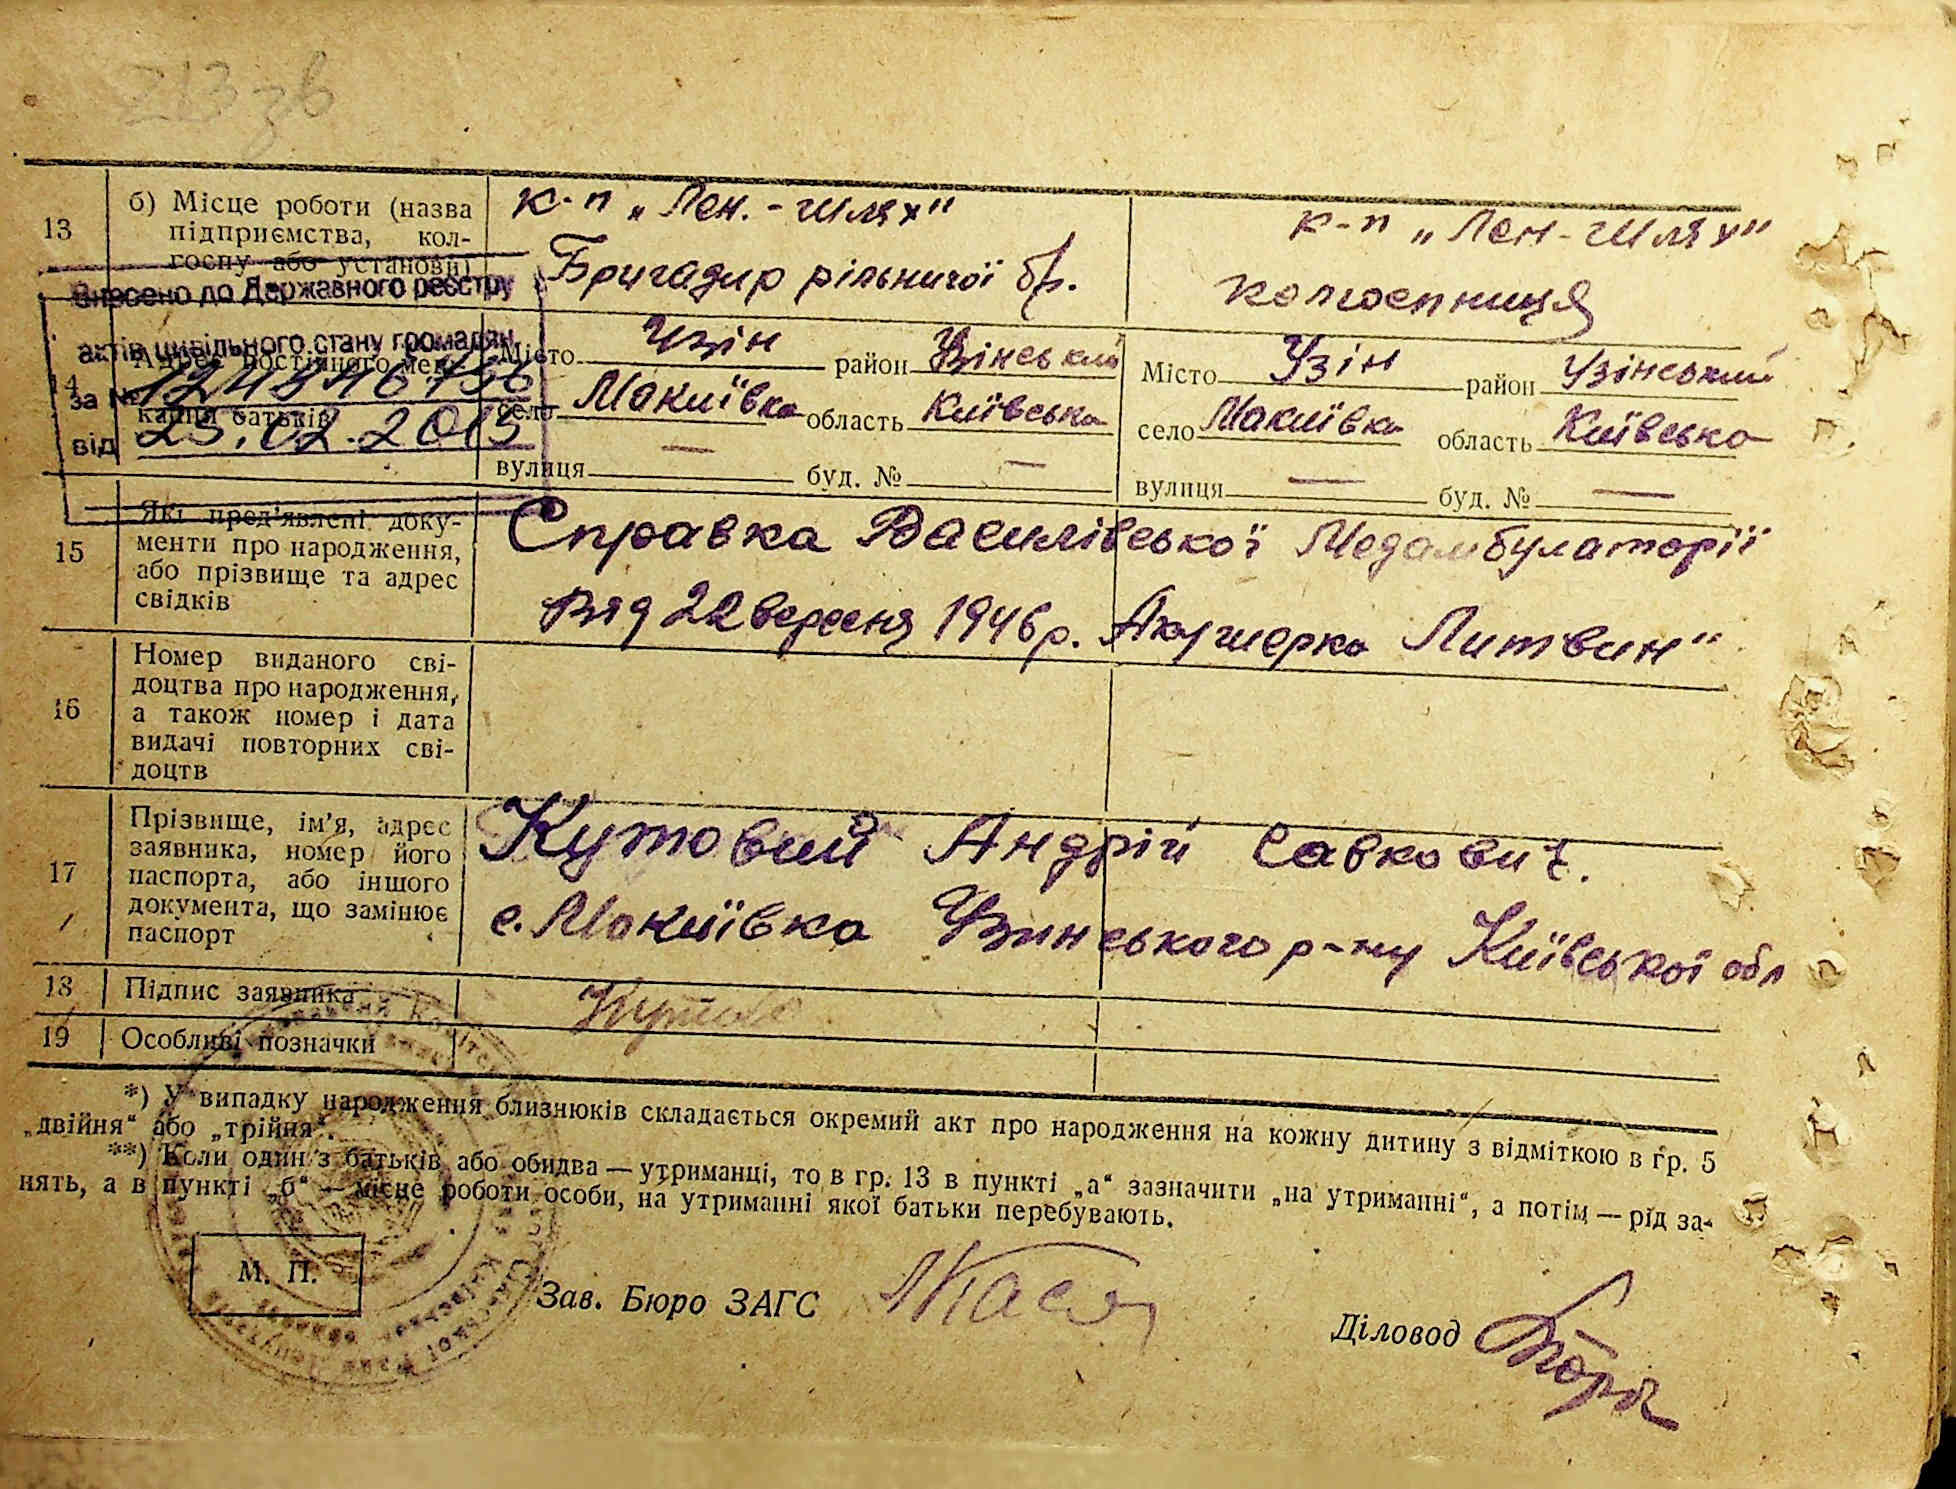 213 зв
13
б) Місце роботи (назва
підприємства, кол-
госпу або установи)
к-п „Лен.-шлях"
Бригадир рільничої бр.
к-п „Лен-шлях"
колгоспниця
Внесено до Державного реєстру
актів цивільного стану громадян
за №
від 25.02.2015
14
Адрес постійного меш-
кання батьків
Місто Узін район Узінський
село Макиївка область Київська
вулиця — буд. № —
Місто Узін район Узінський
село Макиївка область Київська
вулиця — буд. № —
15
Які пред'явлені доку-
менти про народження,
або прізвище та адрес
свідків
Справка Василівської Медамбулаторії
Від 22 вересня 1946 р. Акушерка Литвин"
16
Номер виданого сві-
доцтва про народження,
а також номер і дата
видачі повторних сві-
доцтв
17
Прізвище, ім'я, адрес
заявника, номер його
паспорта, або іншого
документа, що замінює
паспорт
Кутовий Андрій Савкович.
с. Макиївка Узинського р-ну Київської обл
18
Підпис заявника
19
Особливі позначки
*) У випадку народження близнюків складається окремий акт про народження на кожну дитину з відміткою в гр. 5
„двійня" або „трійня".
**) Коли один з батьків або обидва — утриманці, то в гр. 13 в пункті „а" зазначити „на утриманні", а потім — рід за-
нять, а в пункті „б" — місце роботи особи, на утриманні якої батьки перебувають.
М. П.
Зав. Бюро ЗАГС
Діловод